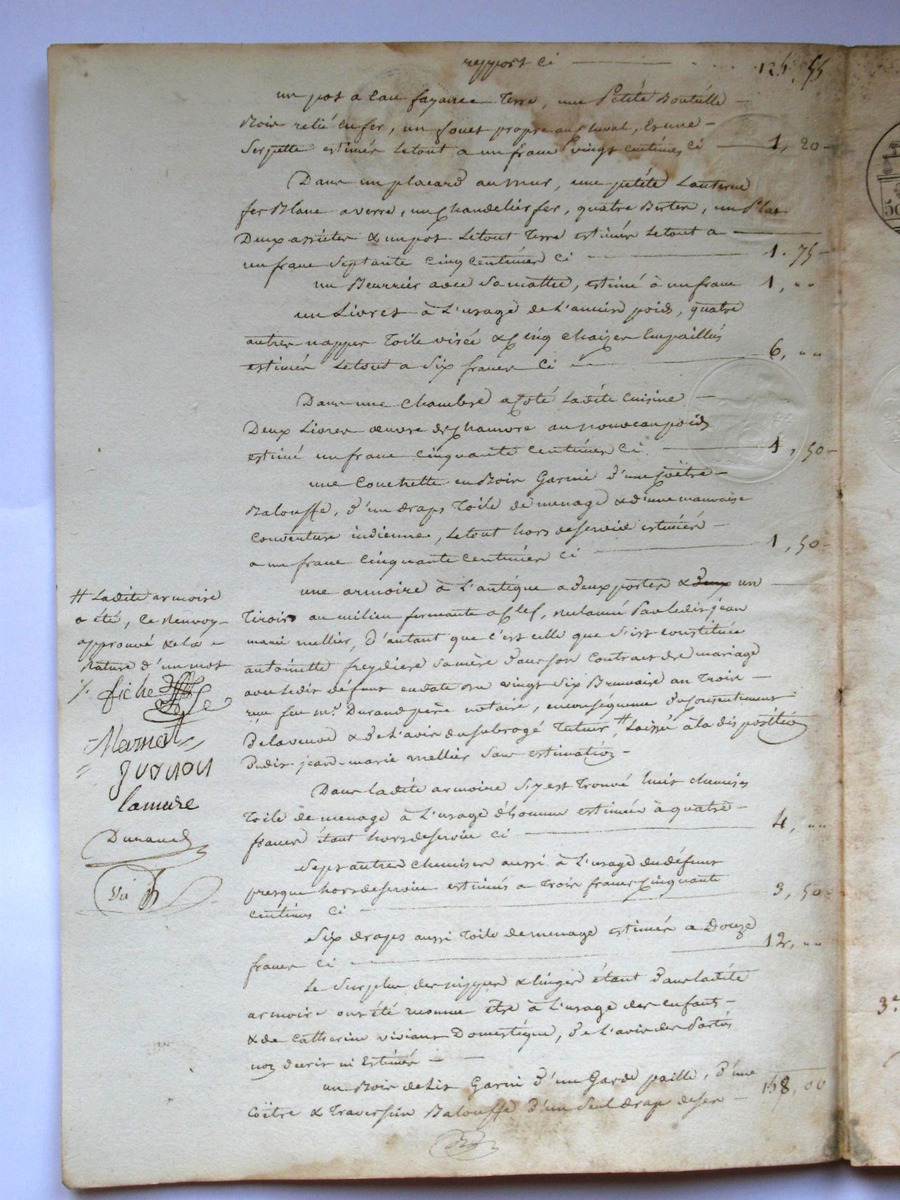 report ci 125. 55
un pot a l'eau fayance Terre, une Petite Bouteille
Bois relié en fer, un fouet propre au cheval, Et une
Serpette estimés Le tout a un franc vingt centimes ci 1, 20
Dans un placard au mur, une petite Lanterne
fer Blanc a verre, un Chandelier fer, quatre un Plat
Deux assiettes & un pot Le tout Terre estimés Le tout a
un franc Septante Cinq Centimes ci 1. 75
un Beurrier avec Sa estimé à un franc 1, "
un Livres à L'usage de L'ancien poids, quatre
autres nappes Toile & Cinq Chaises Empaillés
estimés Le tout a Six francs Ci 6, "
Dans une Chambre a Coté Ladite Cuisine
Deux Livres œuvre de Chanvre au nouveau poids
estimé un franc Cinquante Centimes Ci 1, 50
une Couchette en Bois Garnie d'une Coëtre
Balouffe, d'un draps Toile de menage & d'une mauvaise
Couverture indienne, Le tout hors de Service estimés
a un franc Cinquante Centimes Ci 1, 50
une armoire à L'antique a deux portes & deux un
Tiroir au milieu fermante a Clef, reclamé Par Ledit jean
marie mellier, d'autant que c'est celle que S'est Constituée
antoinette freydiere Sa mère dans son Contract de mariage
avec Ledit défunt en date du vingt Six Brumaire an Trois
reçu feu me. Durand père notaire, en conséquence du consentement
De La veuve & de L'avis du subrogé Tuteur, # Laissé à la disposition
Dudit jean-marie mellier Sans estimation
Dans Ladite armoire S'y est Trouvé huit chemises
Toile de menage à L'usage d'homme estimées à quatre
francs étant hors de service ci 4, "
Sept autres Chemises aussi à L'usage du défunt
presque hors de service estimés a Trois francs Cinquante
centimes Ci 3, 50
Six draps aussi Toile de menage estimés a Douze
francs Ci 12, "
Le Surplus des nippes & linges étant dans Ladite
armoire ont été reconnu être à L'usage des enfants
& de Catherine Domestique, de L'avis des Parties
non décrit ni Estimés
un Bois de Lit Garni d'un Garde paille, d'une
Coëtre & Traversin Balouffe d'un Seul drap de ser 158, 00
# Ladite armoire
a été, Ce Renvoy
approuvé de la
Rature d'un mot
fiche
Mamet
guonon
Lamure
Durand